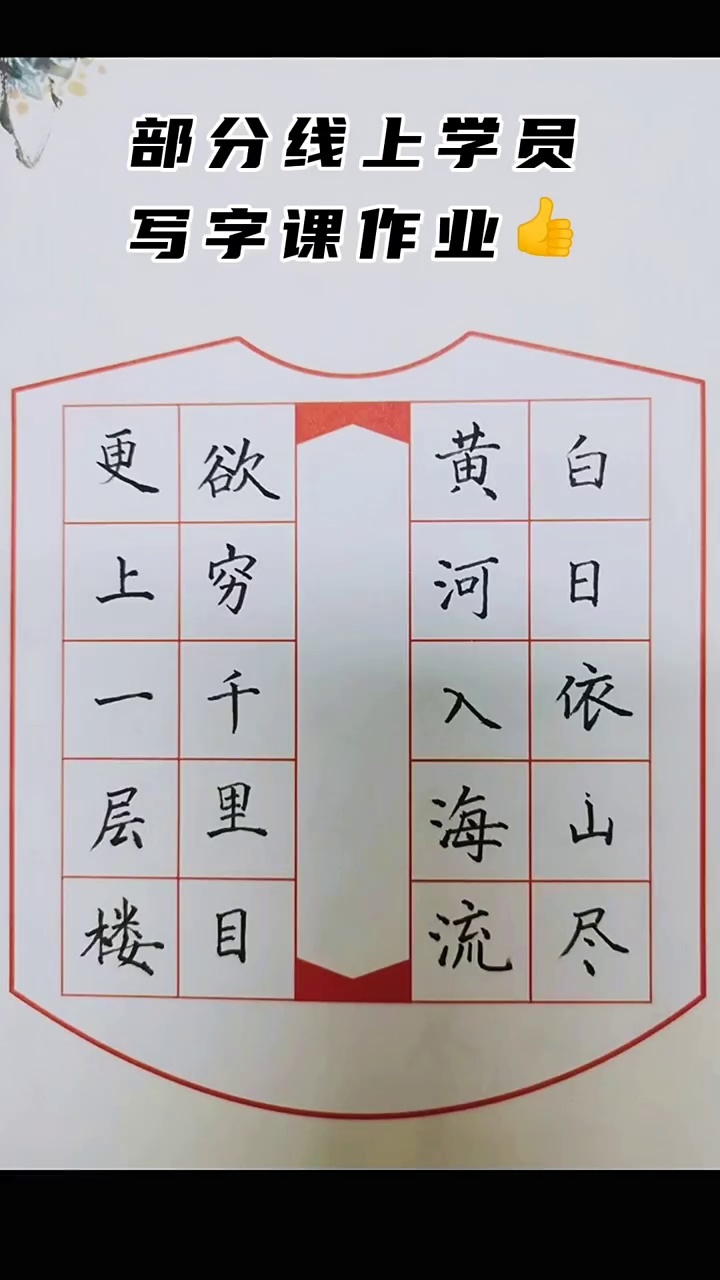 部分线上学员
写字课作业👍
白日依山尽
黄河入海流
欲穷千里目
更上一层楼